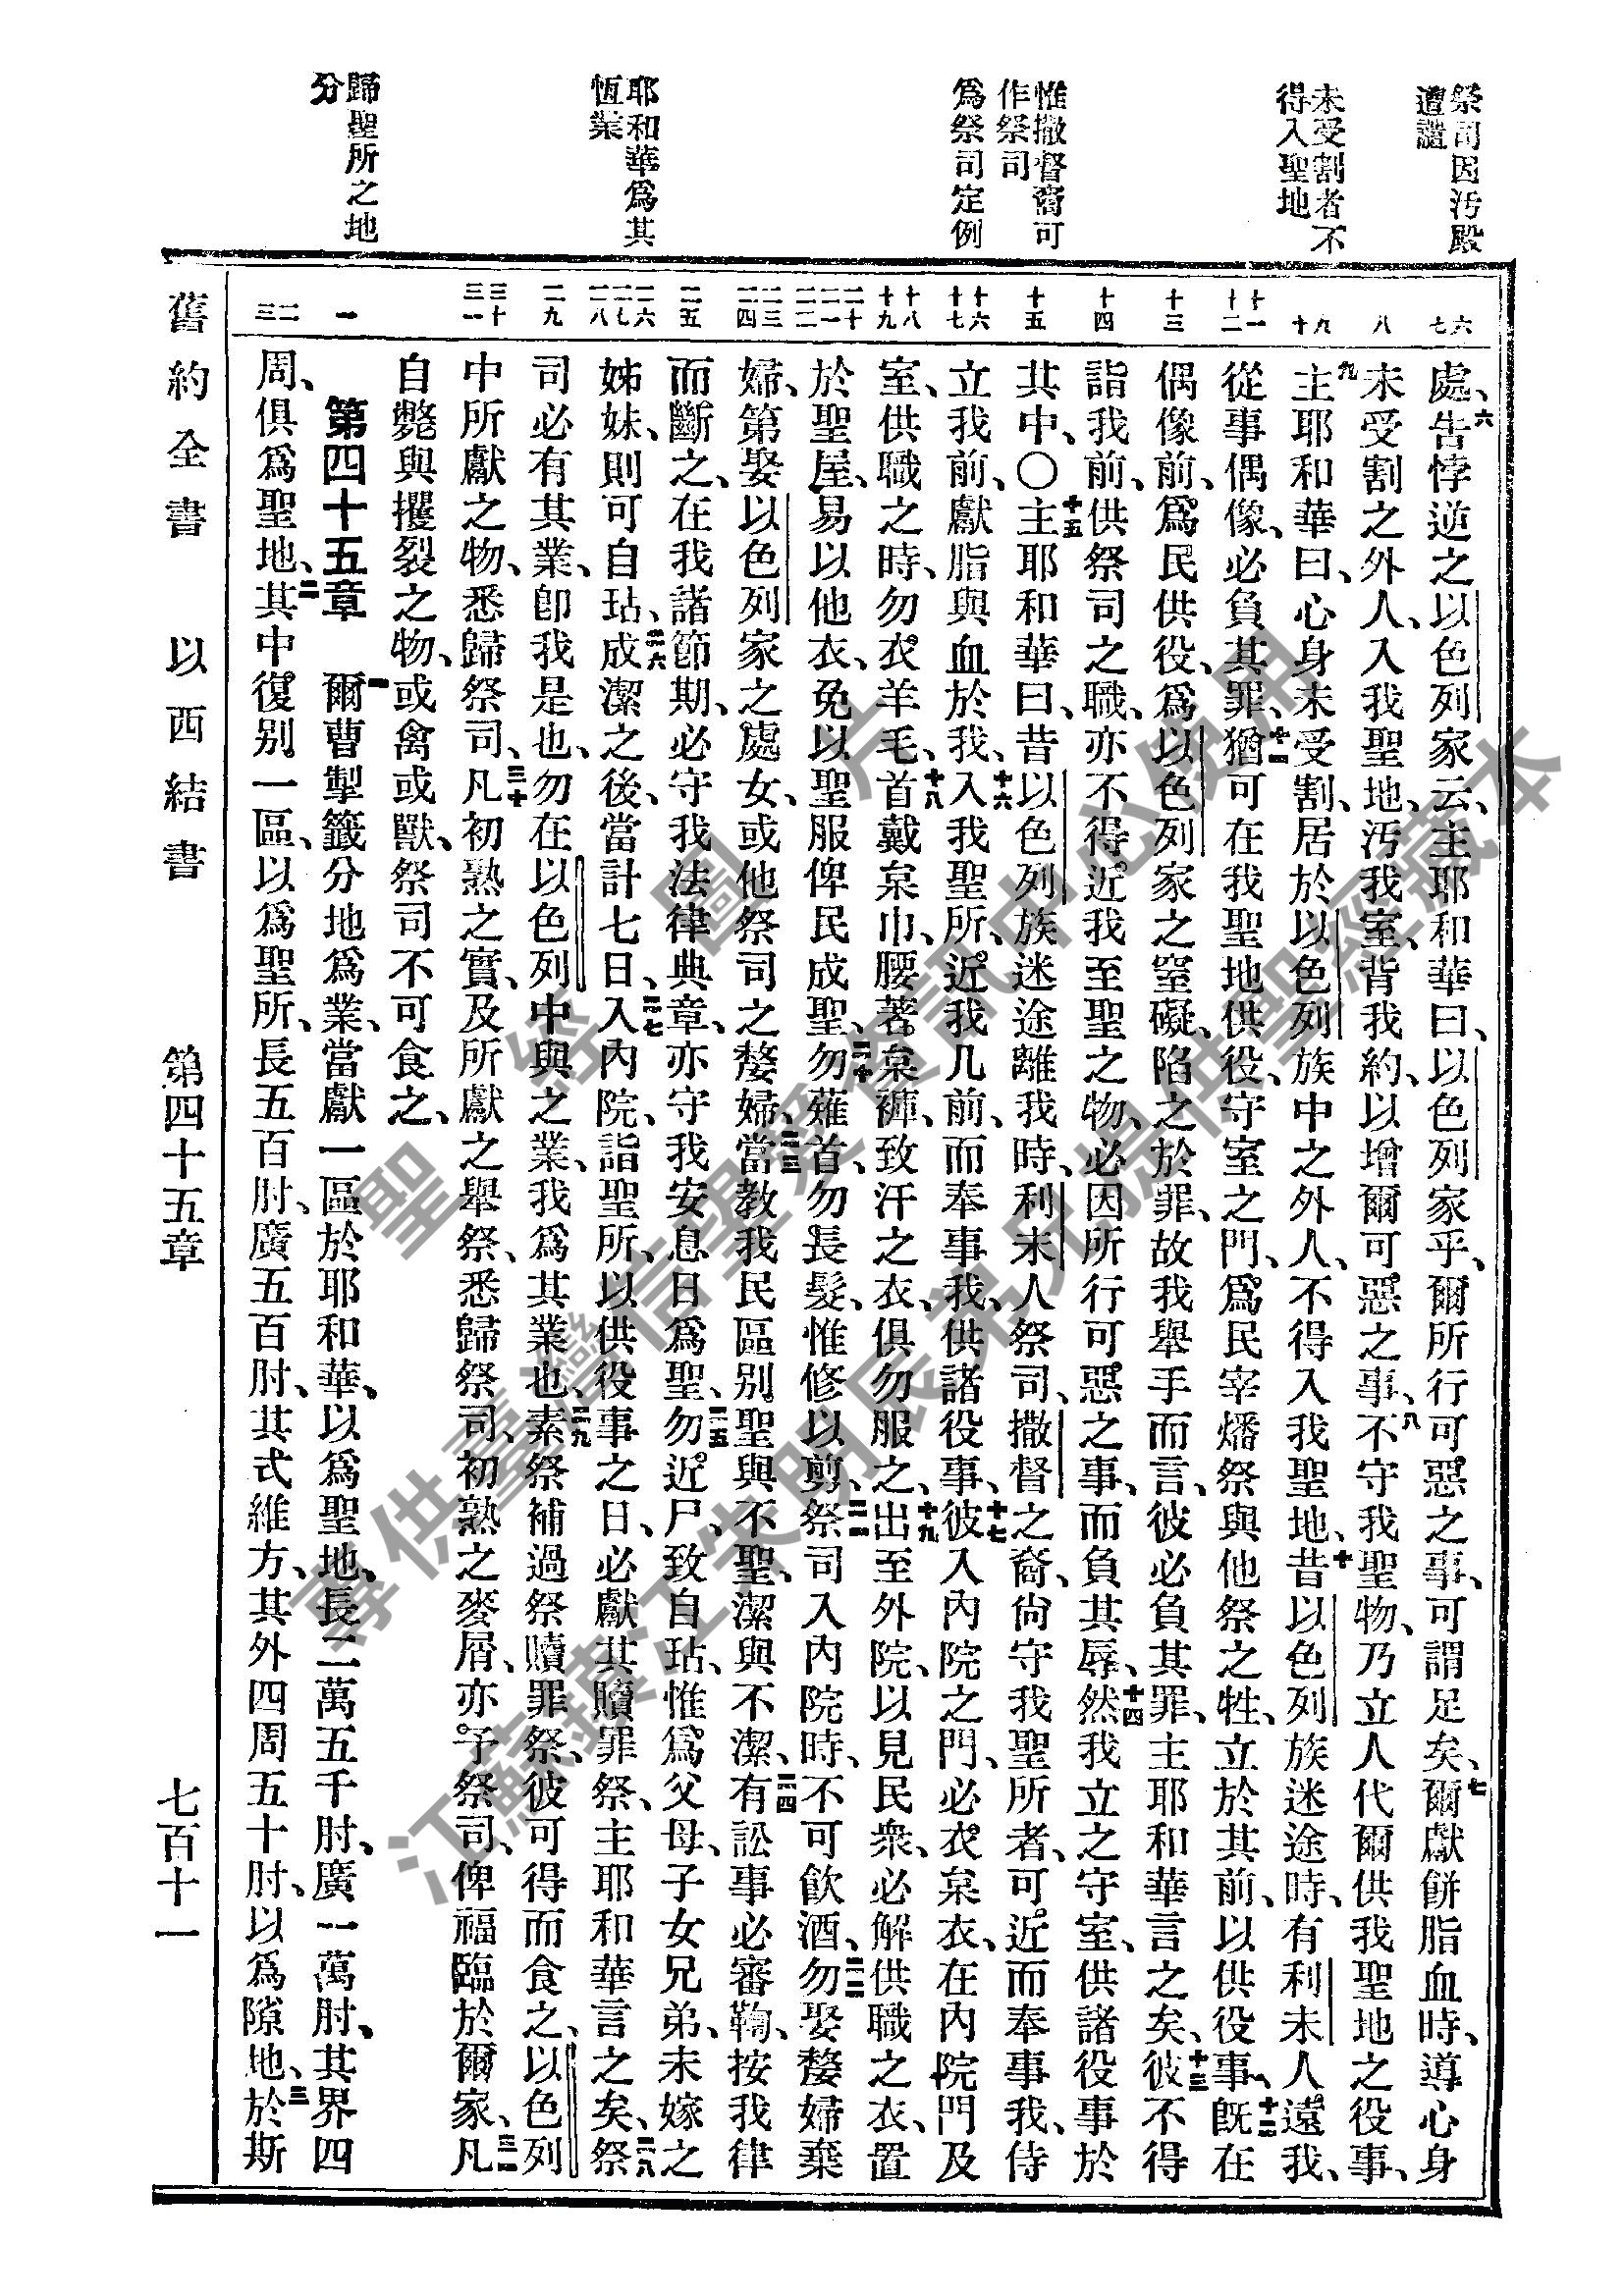 祭司因汚殿
遭譴
未受割者不
得入聖地
惟撒督裔可
作祭司
爲祭司定例
耶和華爲其
恆業
歸聖所之地
分
六
七
八
九
十
十一
十二
十三
十四
十五
十六
十七
十八
十九
二十
二一
二二
二三
二四
二五
二六
二七
二八
二九
三十
三一
一
二
三
處、六告悖逆之以色列家云、主耶和華曰、以色列家乎、爾所行可惡之事、可謂足矣、七爾獻餅脂血時、導心身
未受割之外人、入我聖地、汚我室、背我約、以增爾可惡之事、八不守我聖物、乃立人代爾供我聖地之役事、
九主耶和華曰、心身未受割、居於以色列族中之外人、不得入我聖地、十昔以色列族迷途時、有利未人遠我、
從事偶像、必負其罪、十一猶可在我聖地供役、守室之門、爲民宰燔祭與他祭之牲、立於其前、以供役事、十二旣在
偶像前、爲民供役、爲以色列家之窒礙、陷之於罪、故我舉手而言、彼必負其罪、主耶和華言之矣、十三彼不得
詣我前、供祭司之職、亦不得近我至聖之物、必因所行可惡之事、而負其辱、十四然我立之守室、供諸役事於
其中、○十五主耶和華曰、昔以色列族迷途離我時、利未人祭司、撒督之裔、尙守我聖所者、可近而奉事我、侍
立我前、獻脂與血於我、十六入我聖所、近我几前、而奉事我、供諸役事、十七彼入內院之門、必衣枲衣、在內院門及
室、供職之時、勿衣羊毛、十八首戴枲巾、腰著枲褲、致汗之衣、俱勿服之、十九出至外院、以見民衆、必解供職之衣、置
於聖屋、易以他衣、免以聖服俾民成聖、二十勿薙首、勿長髮、惟修以剪、二一祭司入內院時、不可飮酒、二二勿娶嫠婦棄
婦、第娶以色列家之處女、或他祭司之嫠婦、二三當敎我民區別、聖與不聖、潔與不潔、二四有訟事必審鞫、按我律
而斷之、在我諸節期、必守我法律典章、亦守我安息日爲聖、二五勿近尸、致自玷、惟爲父母、子女兄弟、未嫁之
姊妹、則可自玷、二六成潔之後、當計七日、二七入內院、詣聖所、以供役事之日、必獻其贖罪祭、主耶和華言之矣、二八祭
司必有其業、卽我是也、勿在以色列中與之業、我爲其業也、二九素祭補過祭贖罪祭、彼可得而食之、以色列
中所獻之物、悉歸祭司、三十凡初熟之實、及所獻之舉祭、悉歸祭司、初熟之麥屑、亦予祭司、俾福臨於爾家、三一凡
自斃與攫裂之物、或禽或獸、祭司不可食之、
第四十五章 一爾曹掣籤分地爲業、當獻一區於耶和華、以爲聖地、長二萬五千肘、廣一萬肘、其界四
周、俱爲聖地、二其中復別一區、以爲聖所、長五百肘、廣五百肘、其式維方、其外四周五十肘、以爲隙地、三於斯
舊約全書 以西結書 第四十五章 七百十一
聖經圖片
專供臺灣信望愛資訊中心使用
江蘇鎮江朱明辰弟兄提供聖經藏本